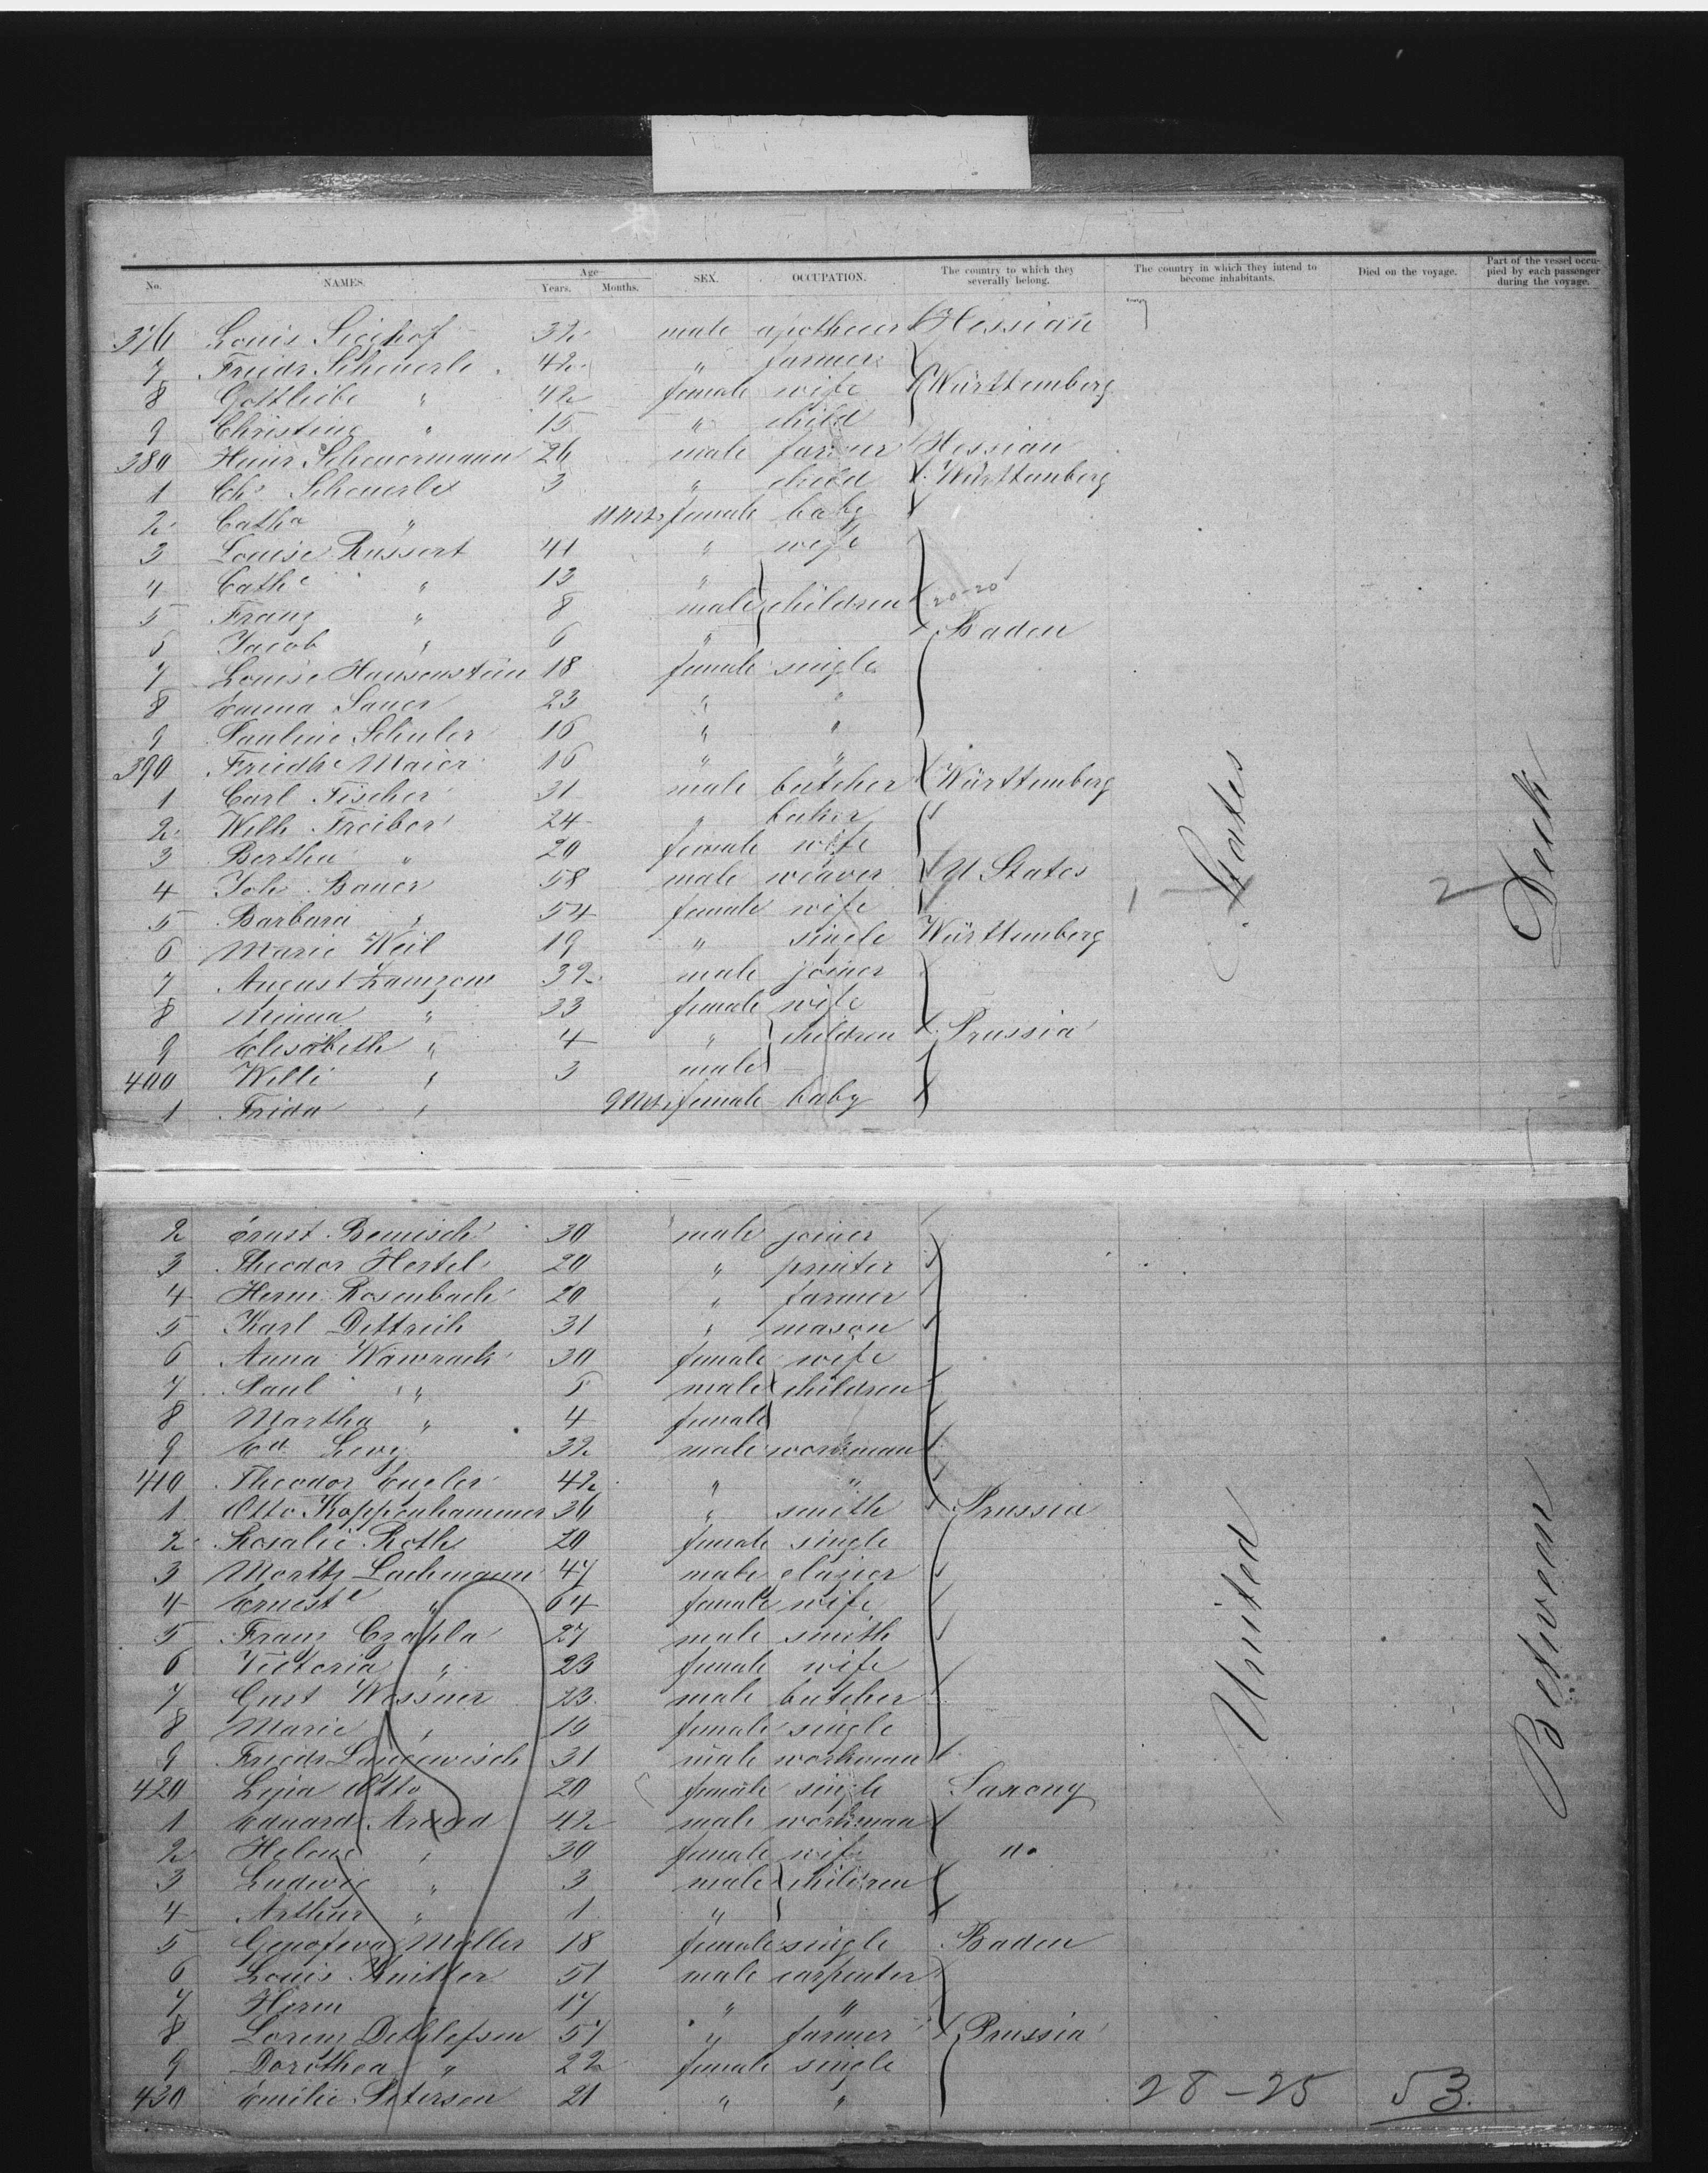 No. NAMES. Age Years. Months. SEX. OCCUPATION. The country to which they severally belong. The country in which they intend to become inhabitants. Died on the voyage. Part of the vessel occupied by each passenger during the voyage.
376 Louis 32 male Hessian
7 Friedr Scheuerle 42 " farmer
8 Gottliebe " 42 female wife Württemberg
9 Christine " 15 " child
380 Heinr Scheuermann 26 male farmer Hessian
1 Chs Scheuerle 3 " child Württemberg
2 Catha " 11 Mts female baby
3 Louise Russert 41 " wife
4 Cathe " 13 "
5 Franz " 8 male children 20-20
6 Jacob " 6 " Baden
7 Louise Hausenstein 18 female single
8 Emma Sauer 23 " "
9 Pauline Schuler 16 " "
390 Friedke Maier 16 " "
1 Carl Fischer 31 male butcher Württemberg
2 Wilh Treiber 24 " baker
3 Bertha " 20 female wife
4 Joh Bauer 58 male weaver U States
5 Barbara " 54 female wife
6 Marie Weil 19 " single Württemberg
7 August Zamzow 32 male joiner
8 Minna " 33 female wife
9 Elisabeth " 4 " children Prussia
400 Willi " 3 male
1 Frida " 9 Mts female baby
2 Ernst Bemisch 30 male joiner
3 Theodor Hertel 20 " printer
4 Herm Rosenbach 20 " farmer
5 Karl Dettrich 31 " mason
6 Anna Wawrack 30 female wife
7 Paul " male children
8 Martha " 4 female
9 Ed Levy 32 male workman
410 Theodor Engler 42 " "
1 Otto Koppenhammer 36 " smith Prussia
2 Rosalie Roth 20 female single
3 Moritz Lachmann 47 male glazier
4 Erneste " 64 female wife
5 Franz Czapla 27 male smith
6 Victoria " 23 female wife
7 Gust Wessner 23 male butcher
8 Marie " 15 female single
9 Friedr Langewisch 31 male workman
420 Otto 20 female single Saxony
1 Eduard 42 male workman
2 Helene " 30 female wife "
3 Ludwig " 3 male children
4 Arthur " 1 "
5 Genofeva Möller 18 female single Baden
6 Louis 51 male carpenter
7 Herm " 17 " "
8 Lorenz Dethlefsen 57 " farmer Prussia
9 Dorothea " 22 female single
430 Emilie Petersen 21 " "
United States
2
Between Deck
28-25 53.